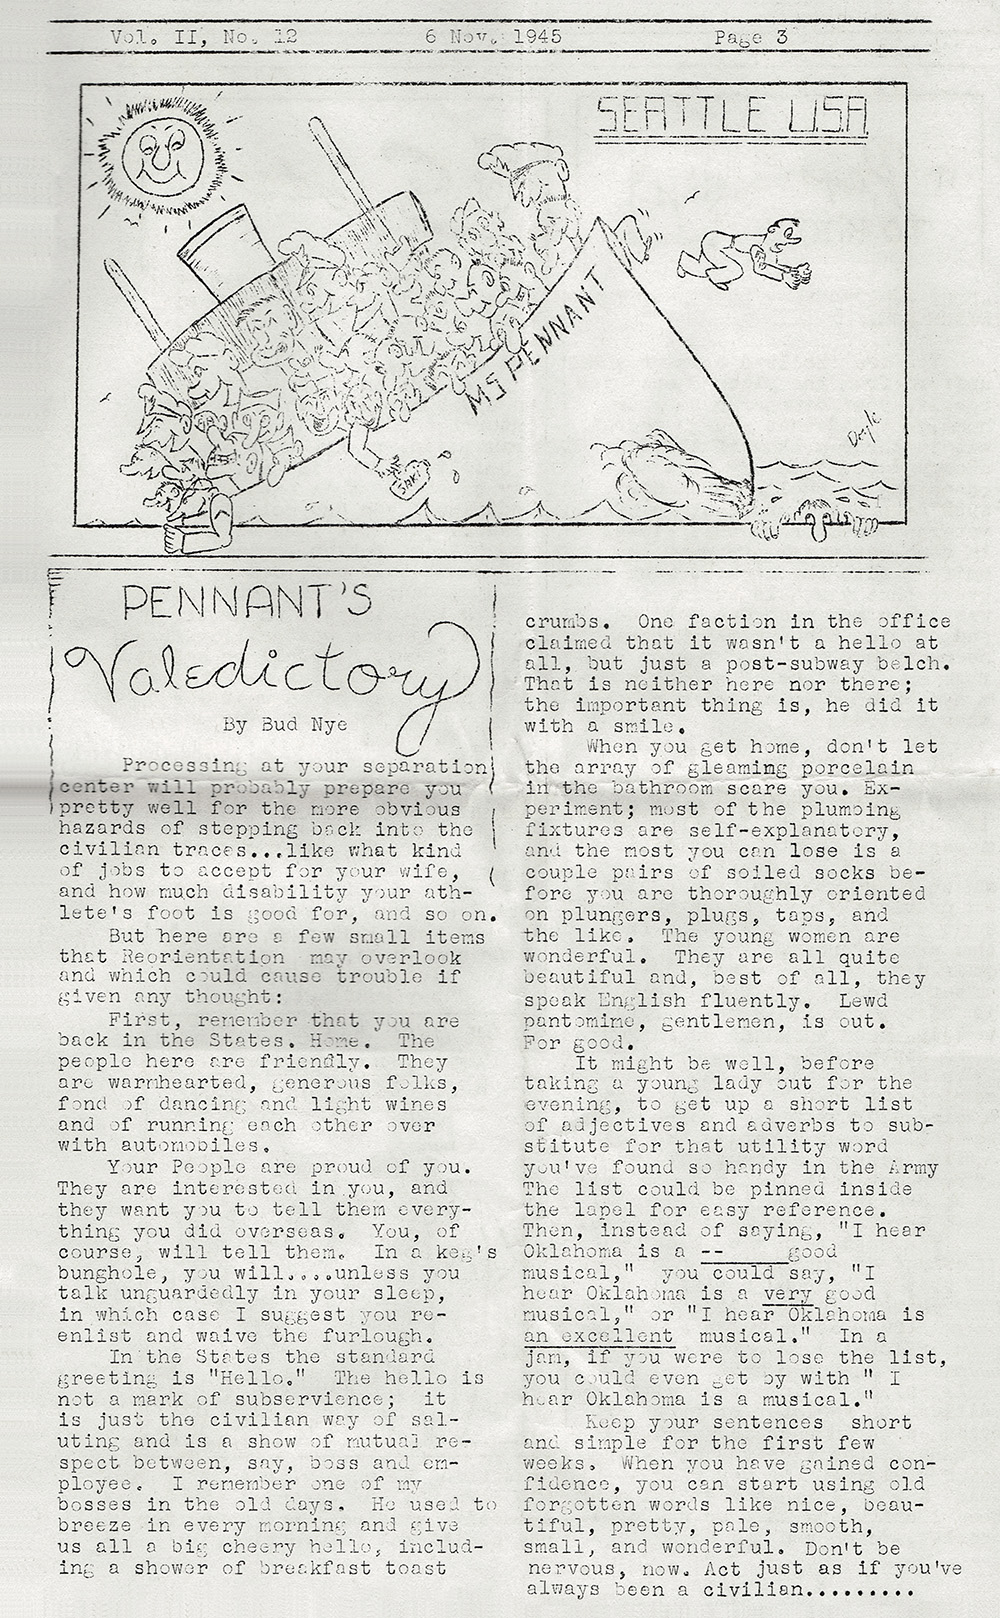 Vol. II, No. 12 6 Nov. 1945 Page 3
SEATTLE USA
MS PENNANT
SAKI
Doyle
PENNANT'S
Valedictory
By Bud Nye
Processing at your separation
center will probably prepare you
pretty well for the more obvious
hazards of stepping back into the
civilian traces...like what kind
of jobs to accept for your wife,
and how much disability your ath-
lete's foot is good for, and so on.
But here are a few small items
that Reorientation may overlook
and which could cause trouble if
given any thought:
First, remember that you are
back in the States. Home. The
people here are friendly. They
are warmhearted, generous folks,
fond of dancing and light wines
and of running each other over
with automobiles.
Your People are proud of you.
They are interested in you, and
they want you to tell them every-
thing you did overseas. You, of
course, will tell them. In a keg's
bunghole, you will....unless you
talk unguardedly in your sleep,
in which case I suggest you re-
enlist and waive the furlough.
In the States the standard
greeting is "Hello." The hello is
not a mark of subservience; it
is just the civilian way of sal-
uting and is a show of mutual re-
spect between, say, boss and em-
ployee. I remember one of my
bosses in the old days. He used to
breeze in every morning and give
us all a big cheery hello, includ-
ing a shower of breakfast toast
crumbs. One faction in the office
claimed that it wasn't a hello at
all, but just a post-subway belch.
That is neither here nor there;
the important thing is, he did it
with a smile.
When you get home, don't let
the array of gleaming porcelain
in the bathroom scare you. Ex-
periment; most of the plumbing
fixtures are self-explanatory,
and the most you can lose is a
couple pairs of soiled socks be-
fore you are thoroughly oriented
on plungers, plugs, taps, and
the like. The young women are
wonderful. They are all quite
beautiful and, best of all, they
speak English fluently. Lewd
pantomime, gentlemen, is out.
For good.
It might be well, before
taking a young lady out for the
evening, to get up a short list
of adjectives and adverbs to sub-
stitute for that utility word
you've found so handy in the Army
The list could be pinned inside
the lapel for easy reference.
Then, instead of saying, "I hear
Oklahoma is a --____good
musical," you could say, "I
hear Oklahoma is a very good
musical," or "I hear Oklahoma is
an excellent musical." In a
jam, if you were to lose the list,
you could even get by with " I
hear Oklahoma is a musical."
Keep your sentences short
and simple for the first few
weeks. When you have gained con-
fidence, you can start using old
forgotten words like nice, beau-
tiful, pretty, pale, smooth,
small, and wonderful. Don't be
nervous, now. Act just as if you've
always been a civilian.........